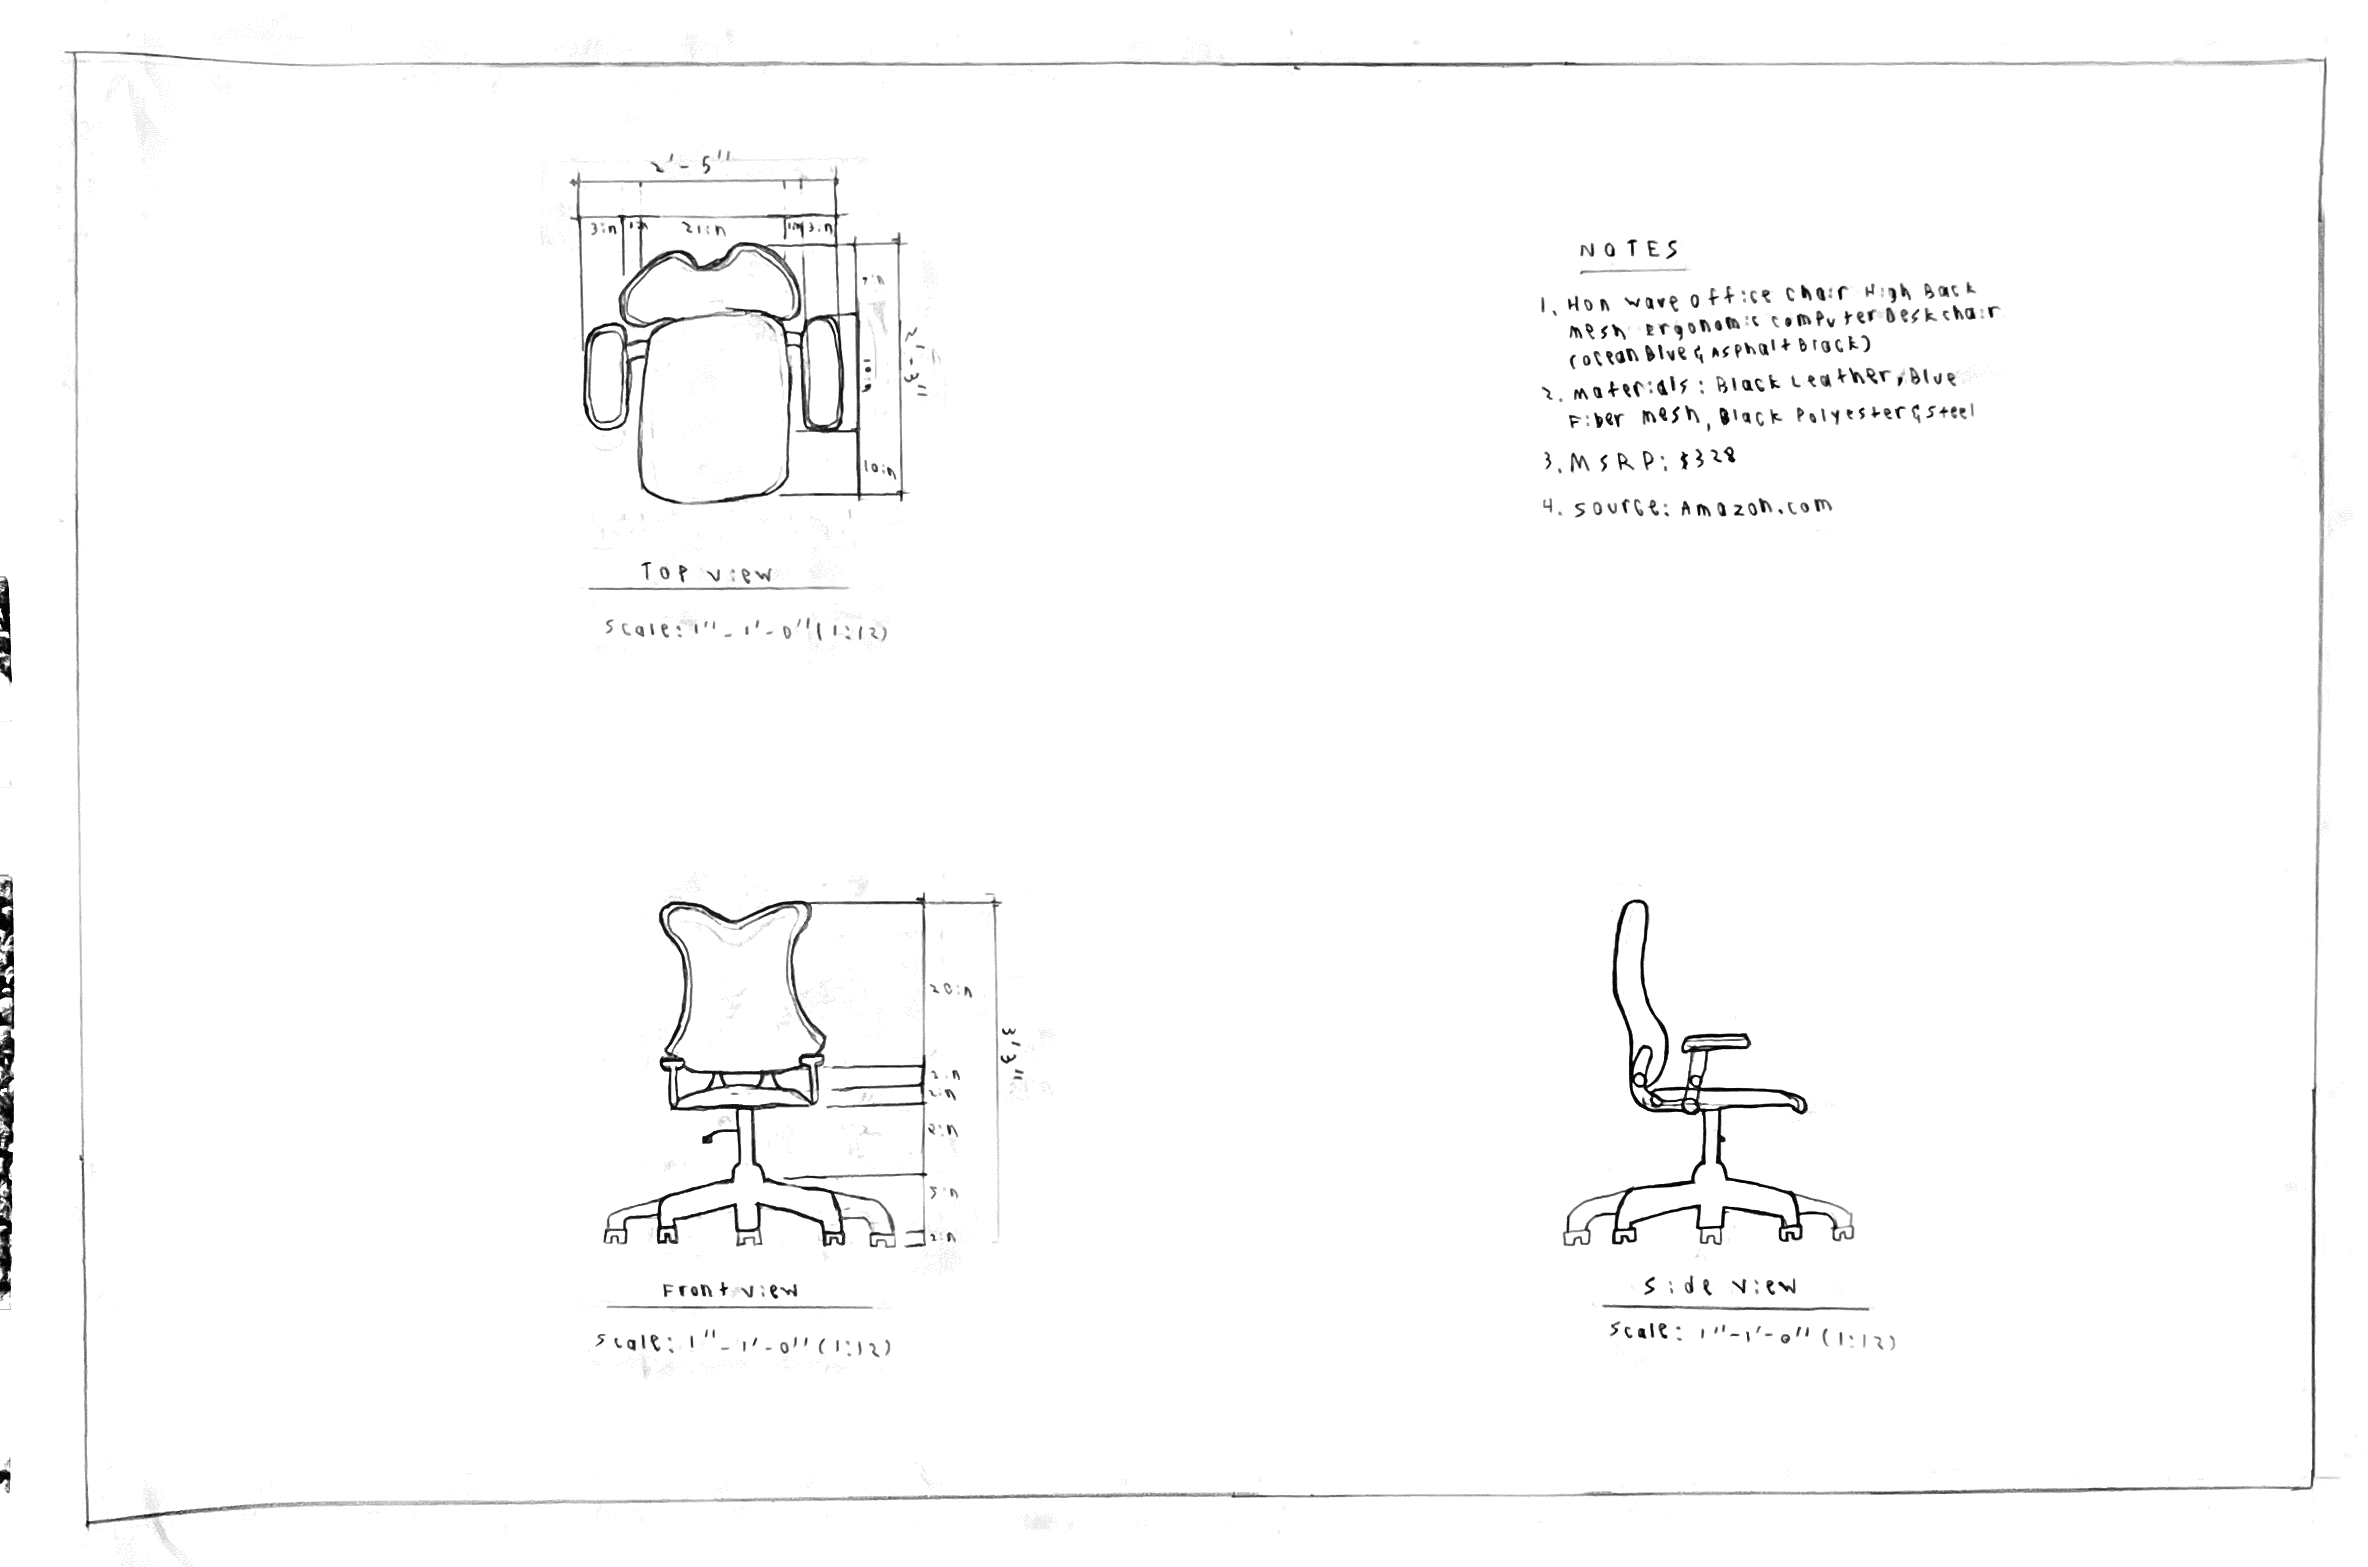 2'-5"
3in 1in 21in 1in 3in
7in
10in
2'-3"
10in
Top view
Scale: 1"-1'-0" (1:12)
NOTES
1. Hon wave office chair High Back
mesh Ergonomic computer Desk chair
(ocean Blue & Asphalt Black)
2. materials: Black Leather, Blue
Fiber mesh, Black Polyester & steel
3. MSRP: $328
4. source: Amazon.com
20in
3'3"
2in
2in
8in
5in
2in
Front view
Scale: 1"-1'-0" (1:12)
Side view
Scale: 1"-1'-0" (1:12)